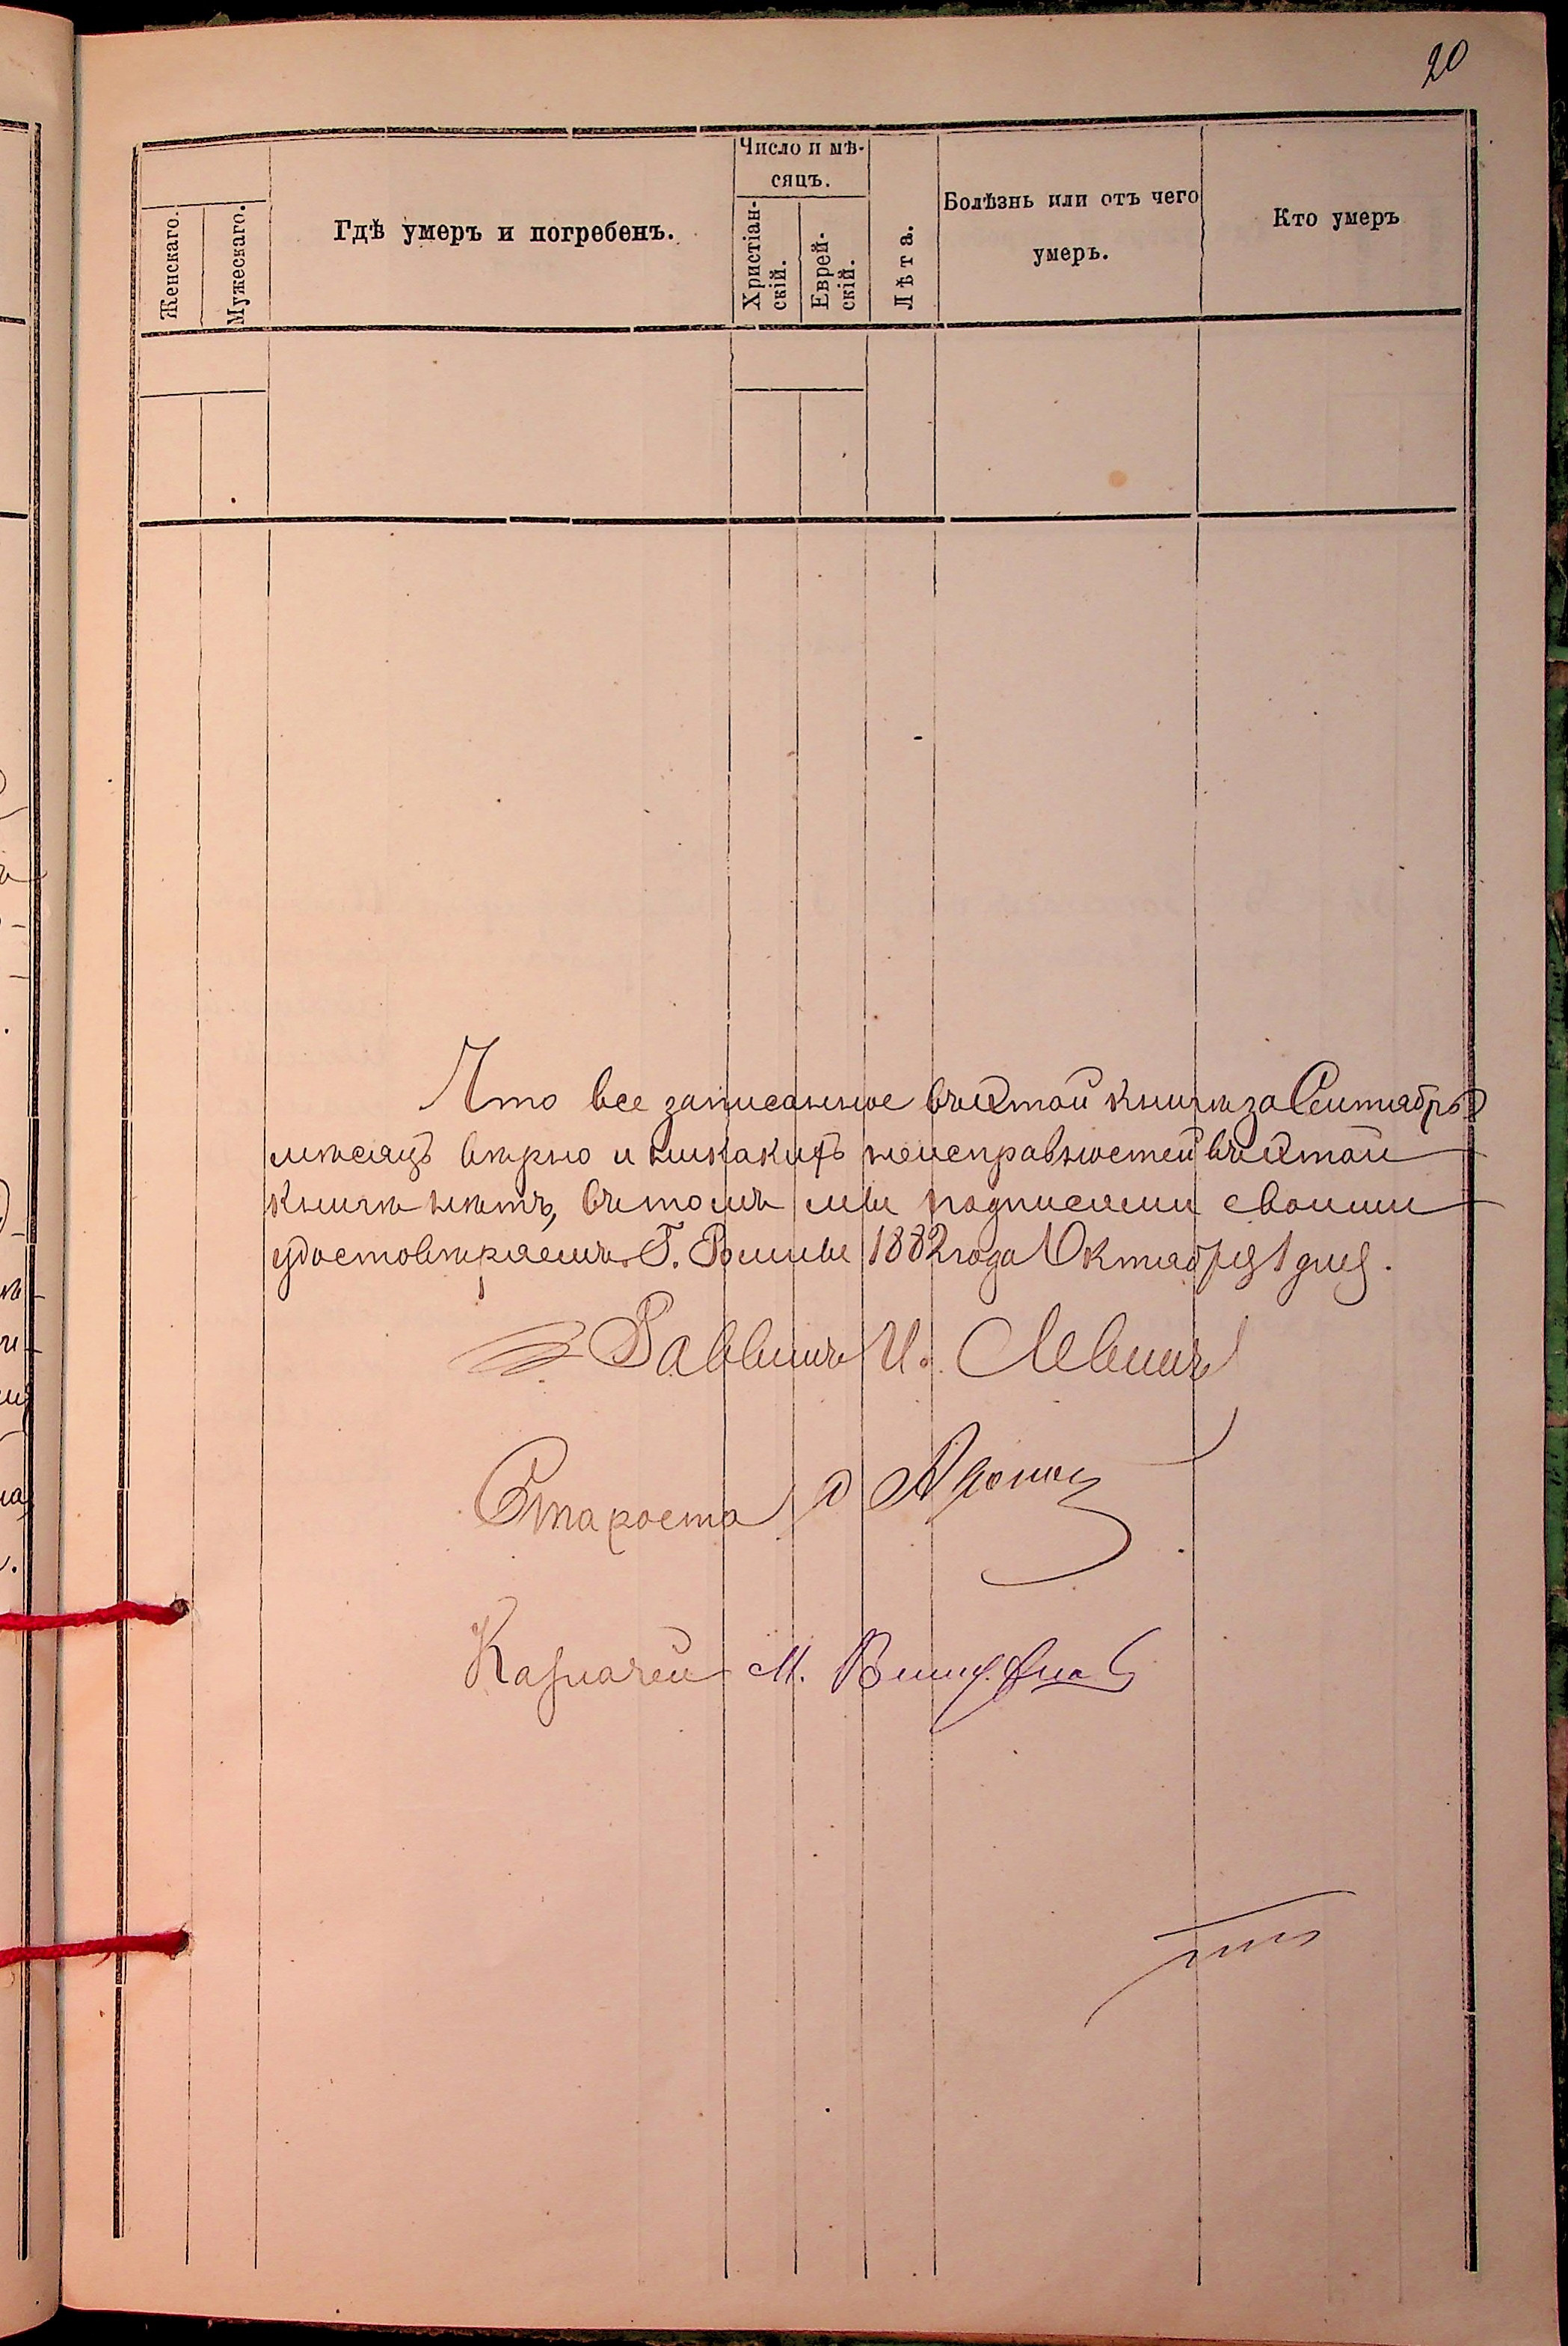 20
Число и мѣ-
сяцъ.
Женскаго.
Мужескаго.
Гдѣ умеръ и погребенъ.
Христіан-
скій.
Еврей-
скій.
Лѣта.
Болѣзнь или отъ чего
умеръ.
Кто умеръ
Что все записанное въ этой книгѣ за Сентябрь
мѣсяцъ вѣрно и никакихъ неисправностей въ этой
книгѣ нѣтъ, въ томъ мы подписями своими
удостовѣряемъ. Г. 1882 года Октября 1 дня.
Раввинъ И. Левинъ
Староста
Казначей М.